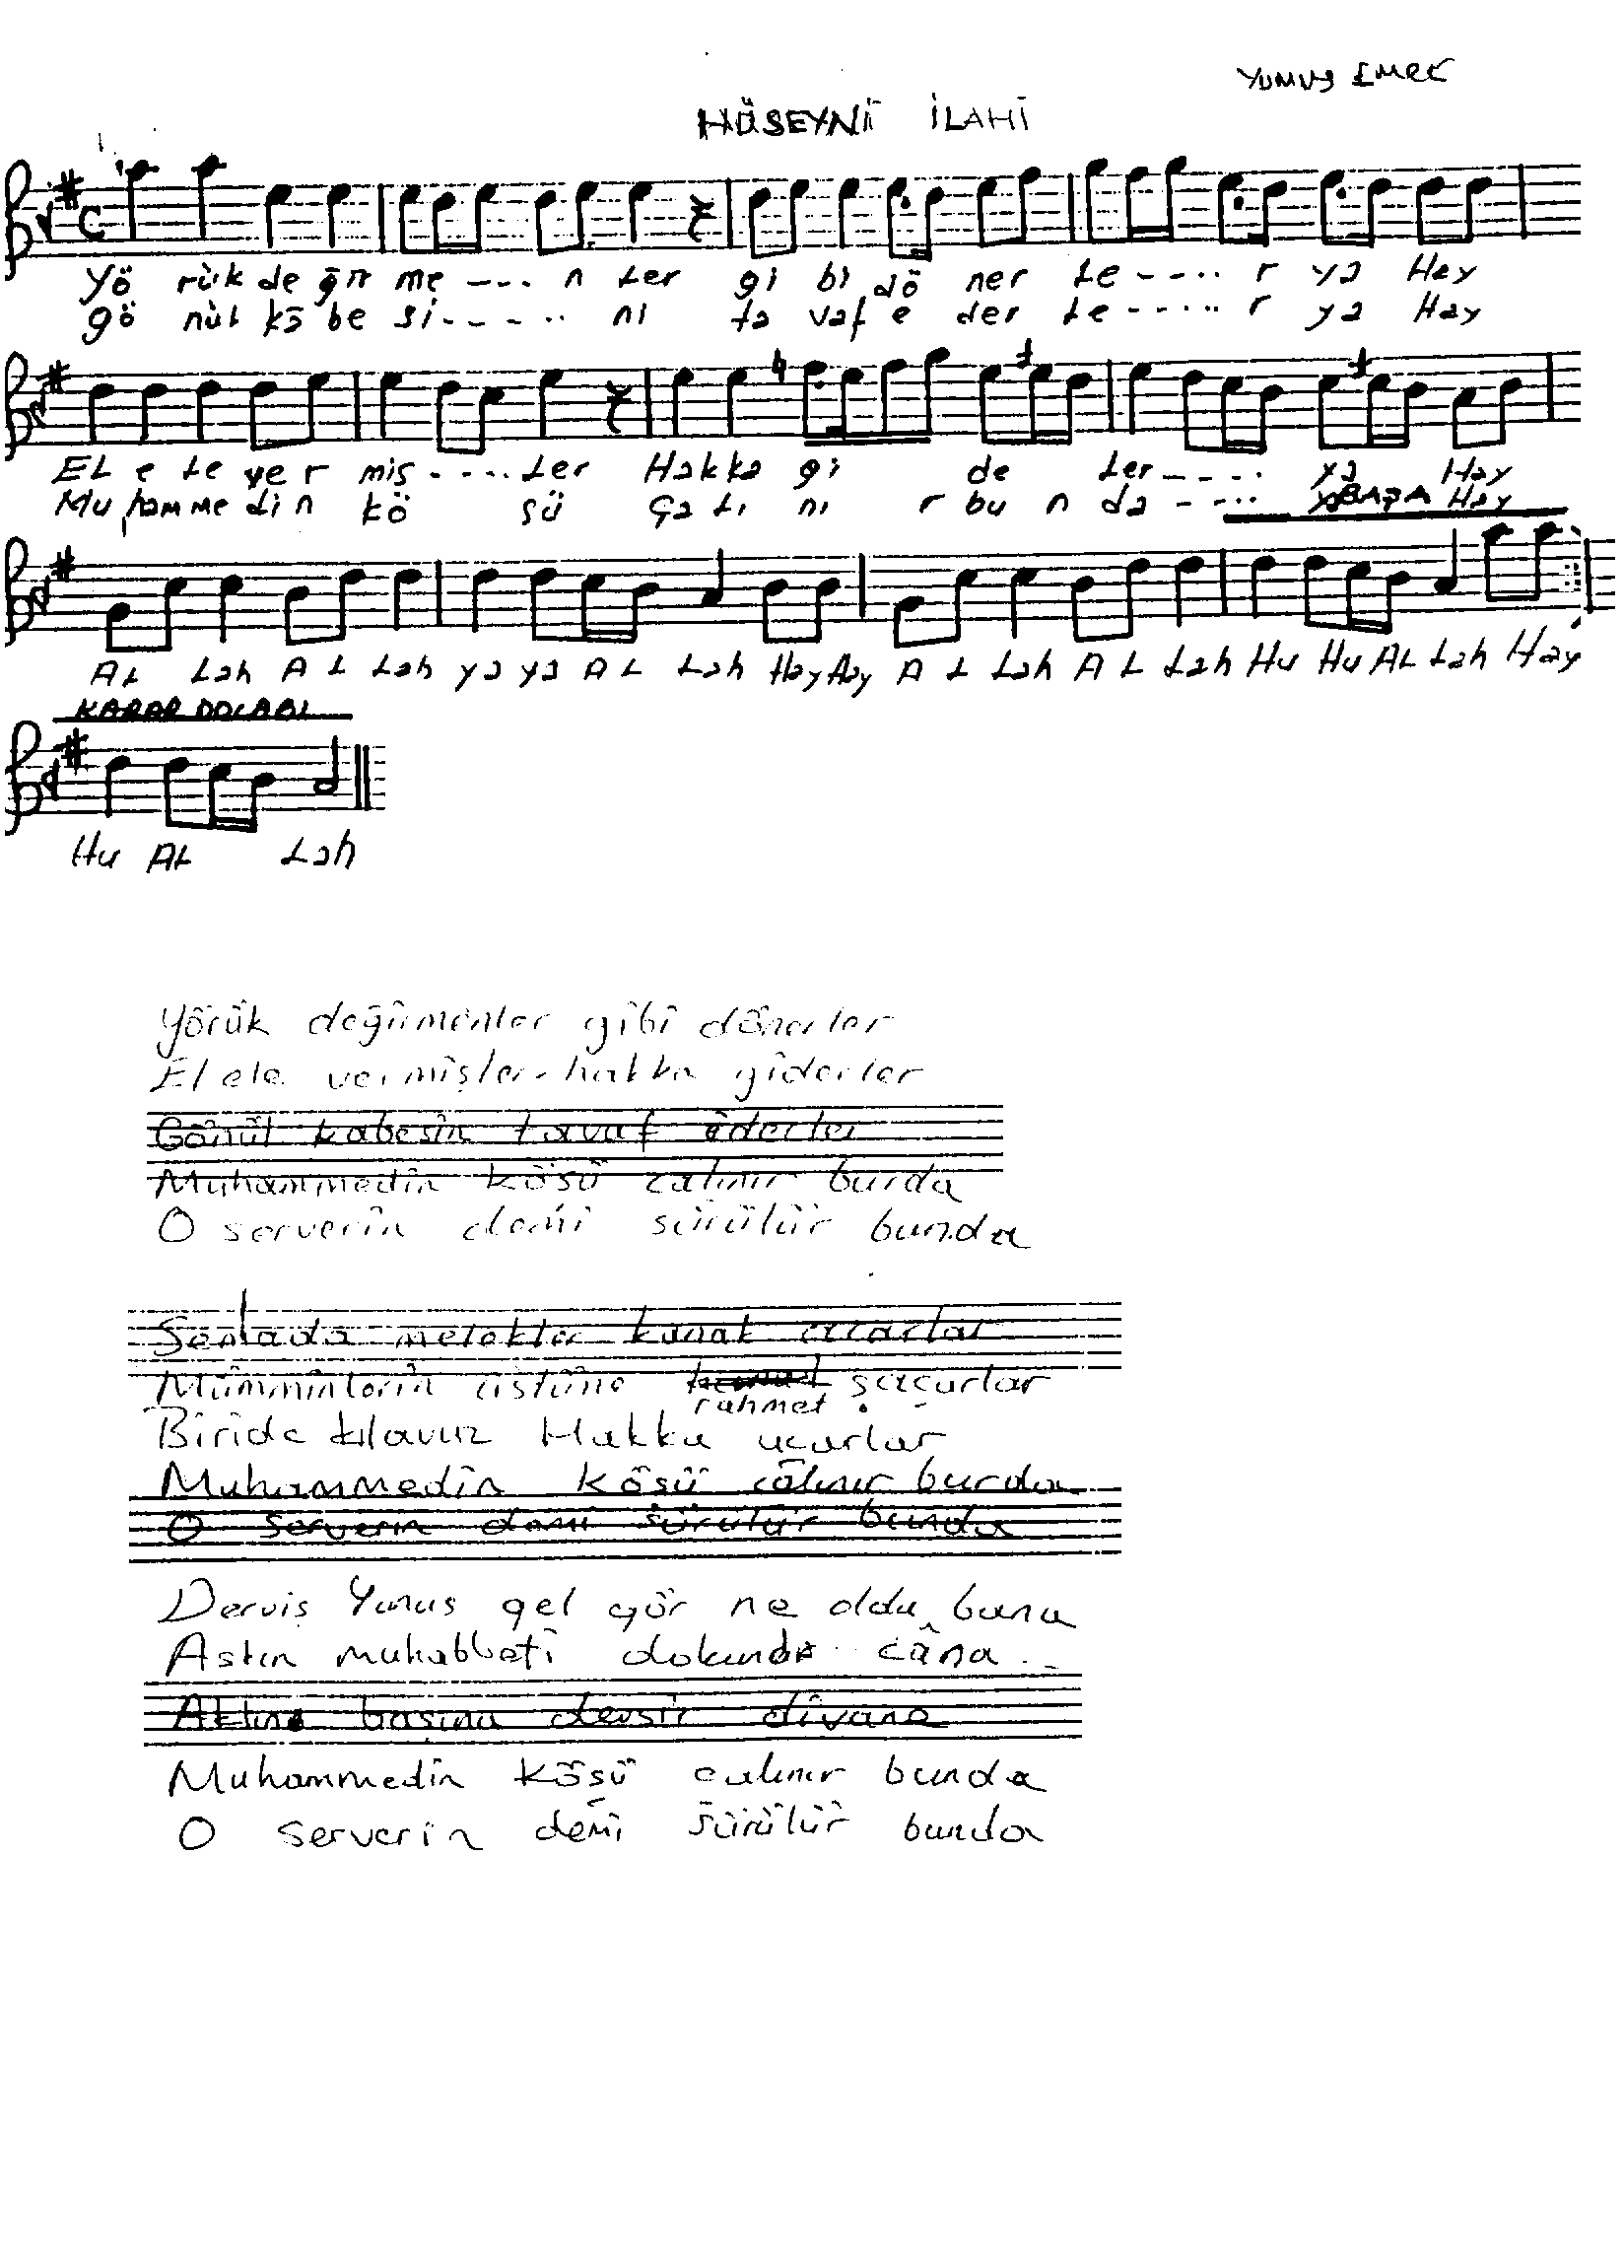 YUNUS EMRE
HÜSEYNİ İLAHİ
Yö rük değir me --- n ler gi bi dö ner le ---- r ya Hay
gö nül kâ be si ----- ni ta vaf e der le ----- r ya Hay
EL e le ver miş ---- ler Hakka gi de ler ----- ya Hay
Mu hammedin kö sü Ça lı nı r bu n da ----- ya Hay
BAŞA
AL Lah A L Lah ya ya A L Lah Hay Hay A L Lah A L Lah Hu Hu AL Lah Hay
KARAR DOLABI
Hu AL Lah
Yörük değirmenler gibi dönerler
El ele vermişler hakka giderler
Gönül kabesin tavaf ederler
Muhammedin kösü calınır burda
O serverin demi sürülür bunda
Semada melekler kanat acarlar
Mümminlerin üstüne saçarlar
rahmet
Biride kılavuz Hakka uçarlar
Muhammedin kösü calınır burda
O serverin demi sürülür bunda
Derviş Yunus gel gör ne oldu bana
Askın muhabbeti dokundu câna
Aklını başına devsir divane
Muhammedin kösü calınır bunda
O serverin demi sürülür bunda